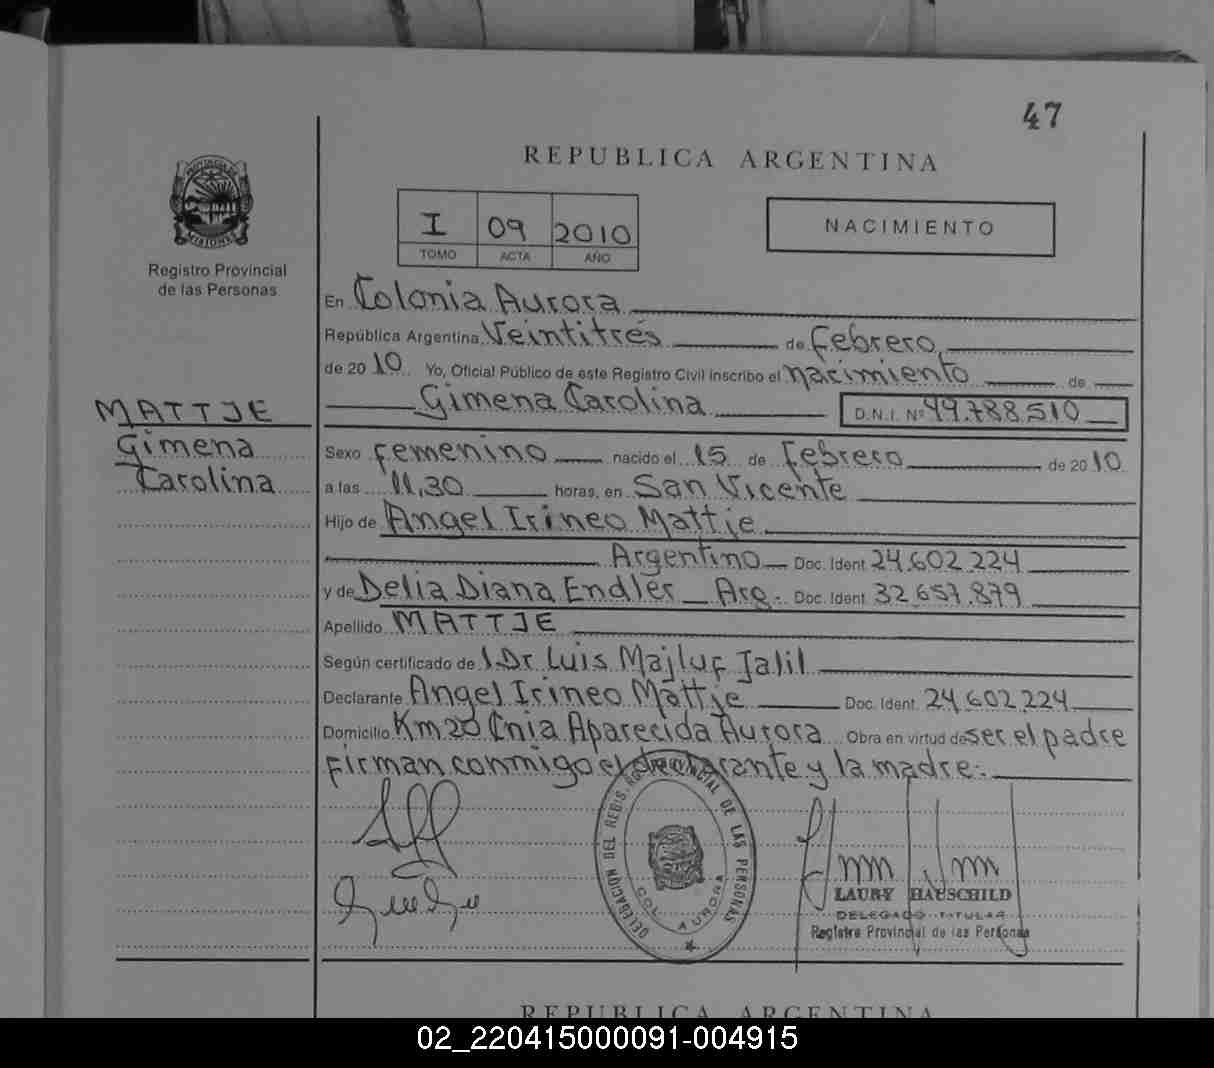 47
REPUBLICA ARGENTINA
PROVINCIA DE
MISIONES
Registro Provincial
de las Personas
I 09 2010
TOMO ACTA AÑO
NACIMIENTO
En Colonia Aurora
República Argentina Veintitrés de Febrero
de 2010. Yo, Oficial Público de este Registro Civil inscribo el nacimiento de
Gimena Carolina D.N.I. Nº 49.788.510
MATTJE
Gimena
Carolina
Sexo Femenino nacido el 15 de Febrero de 2010.
a las 11,30 horas, en San Vicente
Hijo de Angel Irineo Mattje
Argentino Doc. Ident 24.602.224
y de Delia Diana Endler Arg. Doc. Ident 32.657.879
Apellido MATTJE
Según certificado de Dr Luis Majluf Jalil
Declarante Angel Irineo Mattje Doc. Ident. 24.602.224
Domicilio Km 20 Cnia Aparecida Aurora Obra en virtud de ser el padre
Firman conmigo el declarante y la madre.-
DELEGACION DEL REGIS. RO PROVINCIAL DE LAS PERSONAS
COL. AURORA
LAURY HAUSCHILD
DELEGADO TITULAR
Registro Provincial de las Personas
REPUBLICA ARGENTINA
02_220415000091-004915